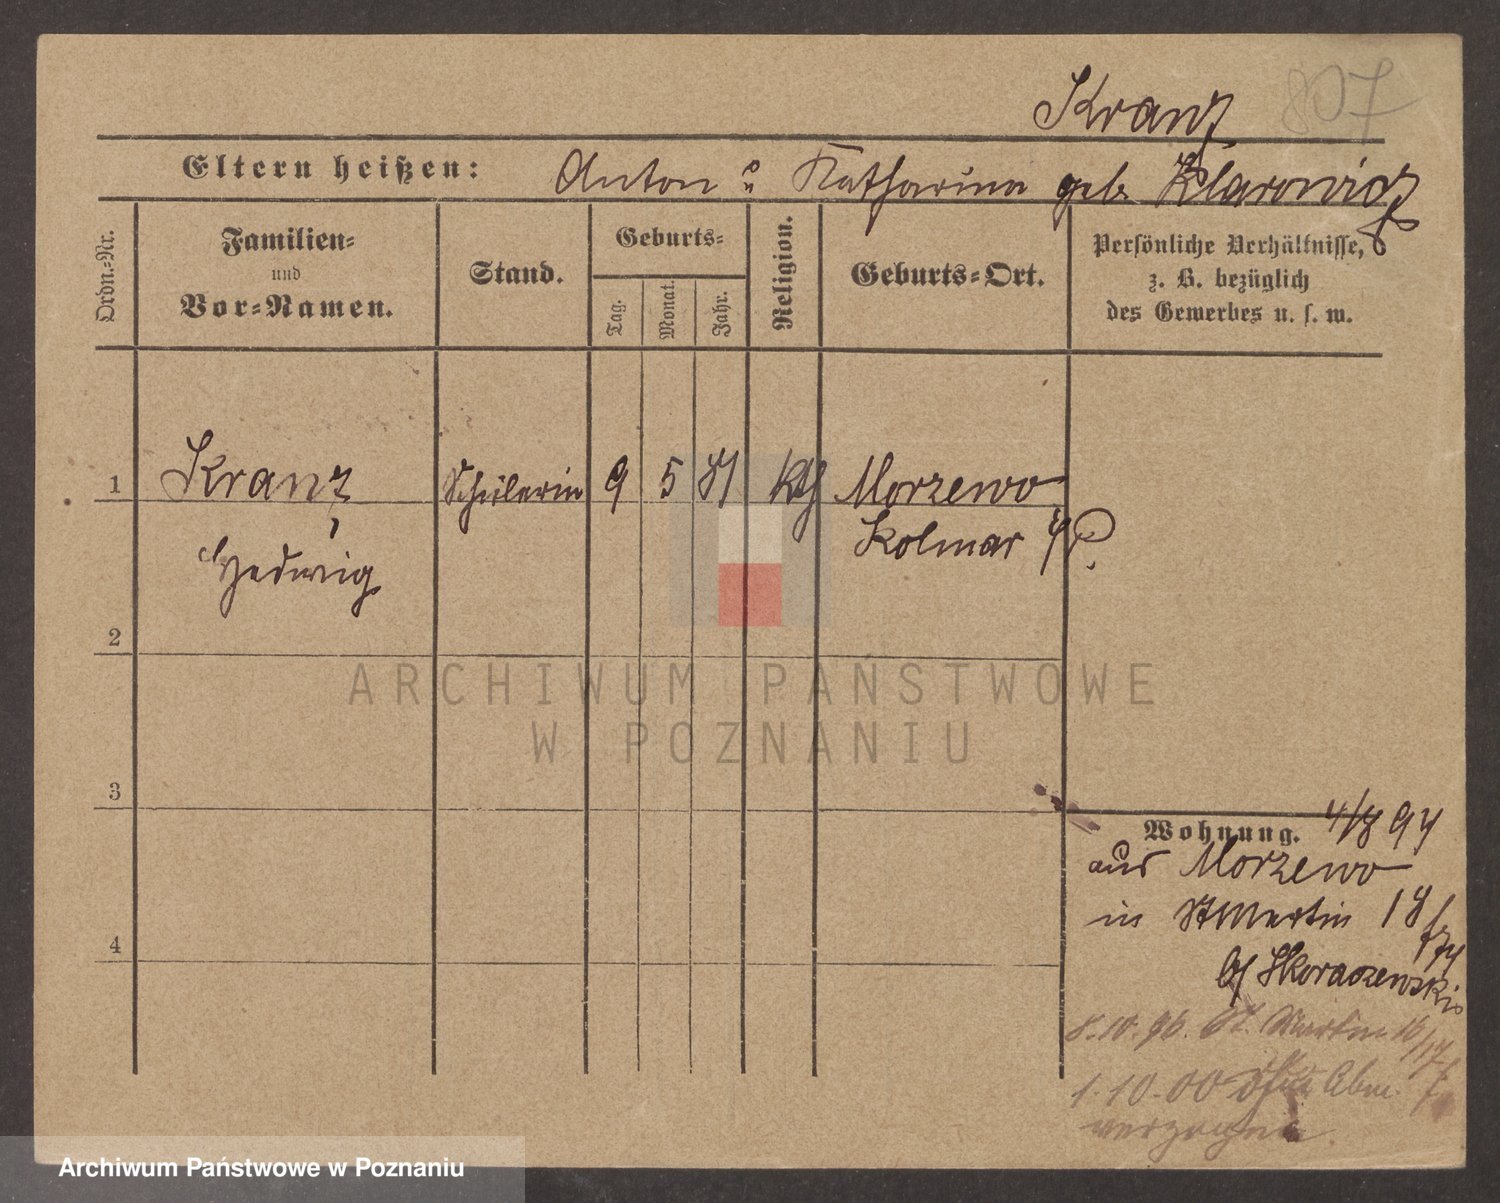 Kranz 807
Eltern heißen: Anton u. Katharina geb. Klarowicz
Ordn.-Nr.
Familien-
und
Vor-Namen.
Stand.
Geburts-
Tag.
Monat.
Jahr.
Religion.
Geburts-Ort.
Persönliche Verhältnisse,
z. B. bezüglich
des Gewerbes u. s. w.
1 Kranz, Schülerin 9 5 81 kth Morzewo
Hedwig Kolmar i/P.
2
3
4
Wohnung. 4/8 94
aus Morzewo
in St Martin 18/74
b/ Skoraczewski
8.10.96. St. Martin 16/17
1.10.00 ohne Abm.
verzogen
ARCHIWUM PAŃSTWOWE
W POZNANIU
Archiwum Państwowe w Poznaniu